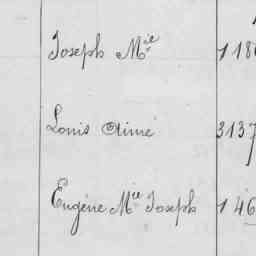 Joseph M.ie 118
Louis Aimé 3137
Eugène M.ie Joseph 146